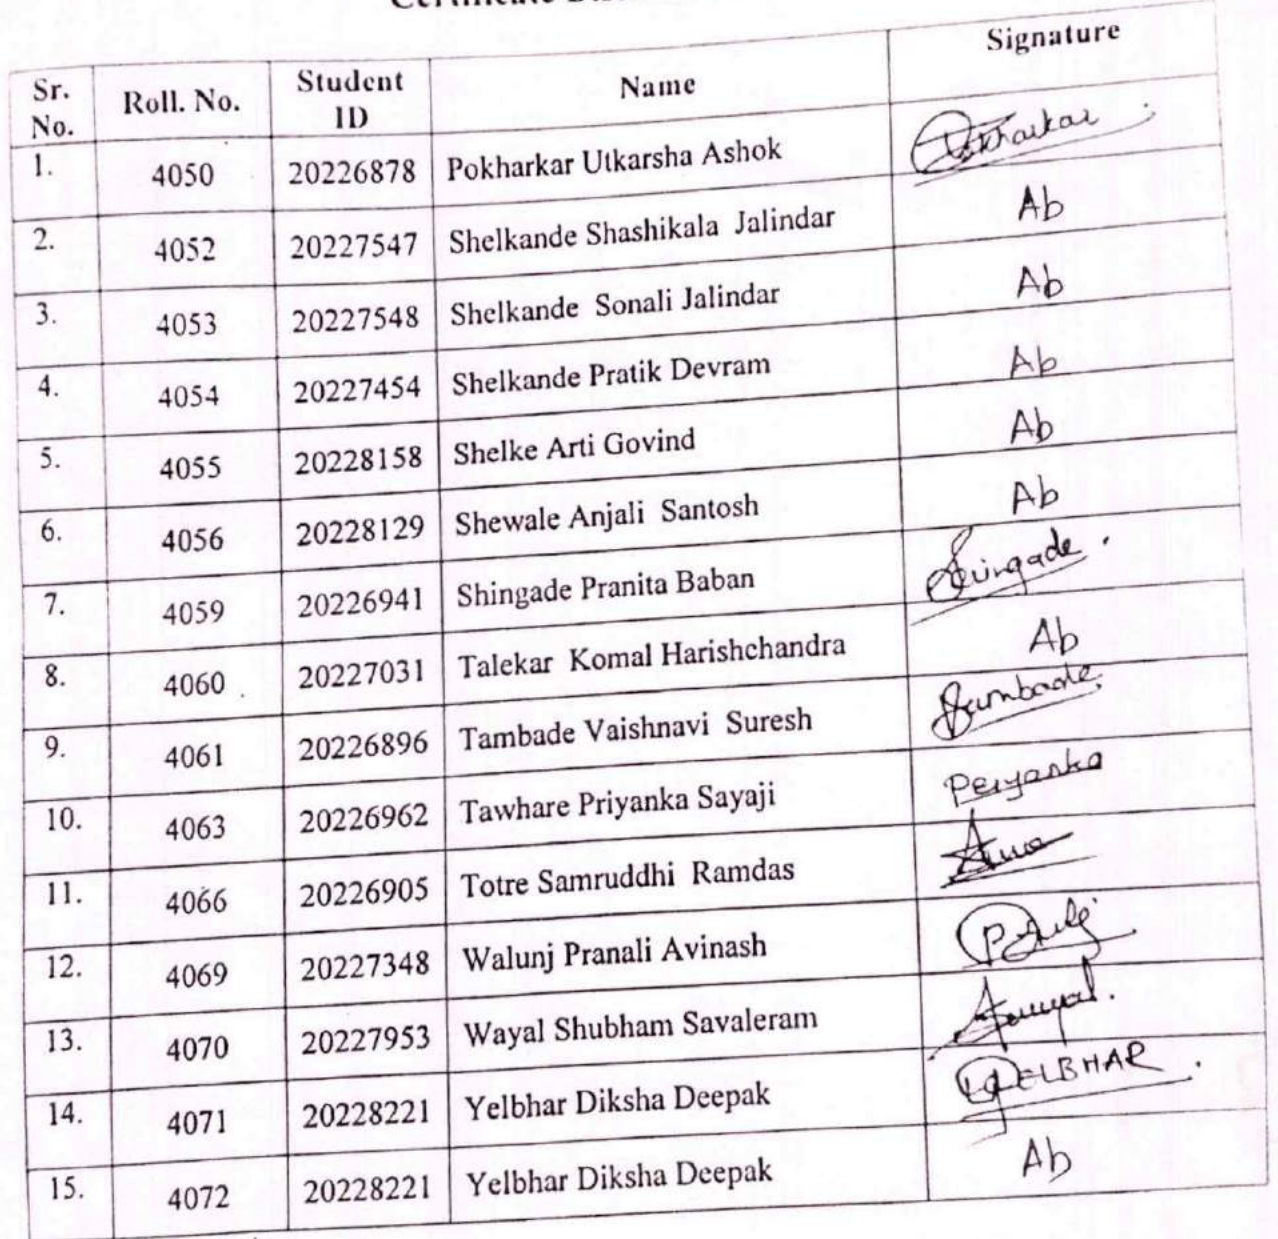 Signature
Sr. No. Roll. No. Student ID Name
1. 4050 20226878 Pokharkar Utkarsha Ashok
2. 4052 20227547 Shelkande Shashikala Jalindar Ab
3. 4053 20227548 Shelkande Sonali Jalindar Ab
4. 4054 20227454 Shelkande Pratik Devram Ab
5. 4055 20228158 Shelke Arti Govind Ab
6. 4056 20228129 Shewale Anjali Santosh Ab
7. 4059 20226941 Shingade Pranita Baban
8. 4060 20227031 Talekar Komal Harishchandra Ab
9. 4061 20226896 Tambade Vaishnavi Suresh
10. 4063 20226962 Tawhare Priyanka Sayaji
11. 4066 20226905 Totre Samruddhi Ramdas
12. 4069 20227348 Walunj Pranali Avinash
13. 4070 20227953 Wayal Shubham Savaleram
14. 4071 20228221 Yelbhar Diksha Deepak YELBHAR
15. 4072 20228221 Yelbhar Diksha Deepak Ab